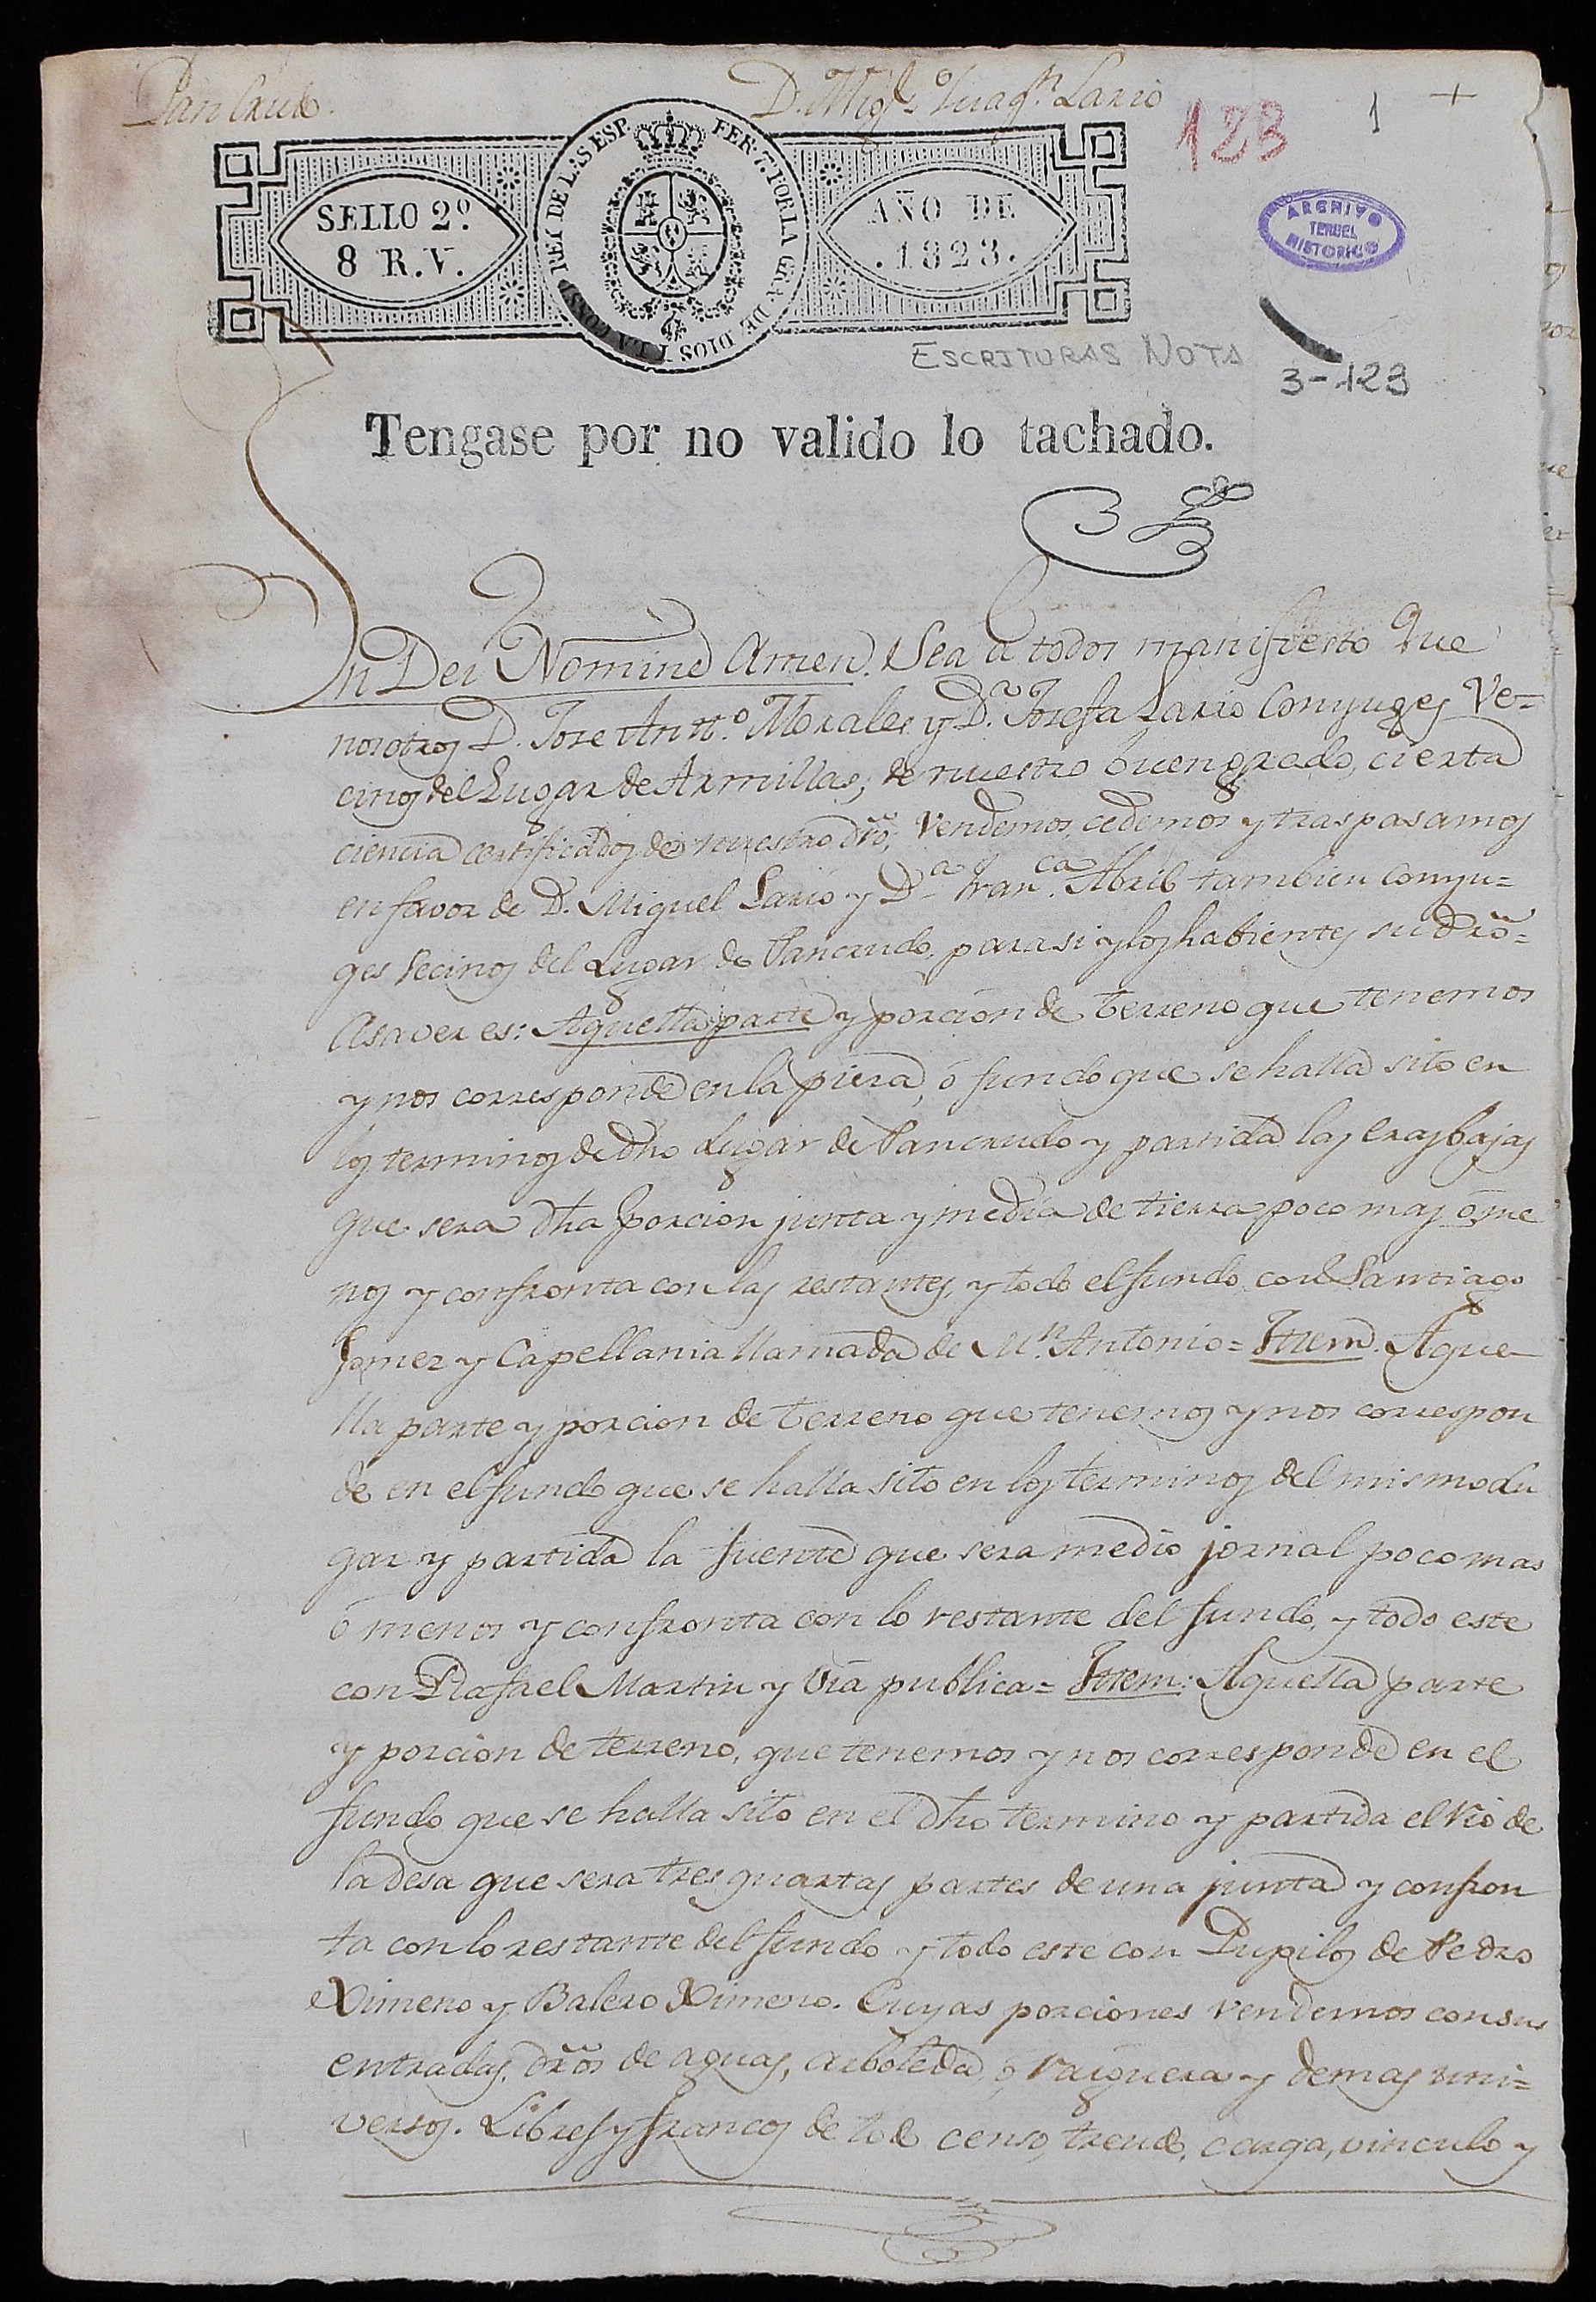 Pancrudo. D. Mig.l Juaq.n Lario
123 1 +
SELLO 2º.
8 R.V.
FER. 7. POR LA GRA. DE DIOS Y LA CONST. REY DE LAS ESP.
AÑO DE
.1823.
ARCHIVO
TERUEL
HISTORICO
ESCRITURAS NOTA
3-123
Tengase por no valido lo tachado.
In Dei Nomine Amen. Sea a todos manifiesto Que
nosotros D. Jose Antt.º Morales y D.ª Josefa Lario Conyuges Ve=
cinos del Lugar de Armillas, de nuestro buen grado, cierta
ciencia certificados de nuestro dr̃o, Vendemos, cedemos y traspasamos
en favor de D. Miguel Lario y D.ª Fran.ca Abril tambien Conyu=
ges Vecinos del Lugar de Pancrudo, para si y los habientes su dr̃o=
Asaver es: Aquella parte y porcion de terreno que tenemos
y nos corresponde en la pieza, ó fundo que se halla sito en
los terminos de dho Lugar de Pancrudo y partida las eras bajas
que sera dha porcion junta y media de tierra poco mas ó me
nos y confronta con las restantes, y todo el fundo con Santiago
Gomez y Capellania llamada de M.n Antonio= Ittem. Aque
lla parte y porcion de terreno que tenemos y nos correspon
de en el fundo que se halla sito en los terminos del mismo Lu
gar y partida la fuente que sera medio jornal poco mas
ó menos y confronta con lo restante del fundo, y todo este
con Rafael Martin y Via publica= Ittem: Aquella parte
y porcion de terreno, que tenemos y nos corresponde en el
fundo que se halla sito en el dho termino y partida el Rio de
la desa que sera tres quartas partes de una junta y confron
ta con lo restante del fundo y todo este con Pupilos de Pedro
Ximeno y Balero Ximeno. Cuyas porciones vendemos con sus
entradas, dr̃os de aguas, arboleda, ó, raiguera y demas uni=
versos. Libres y francos de todo censo, treudo, carga, vinculo y